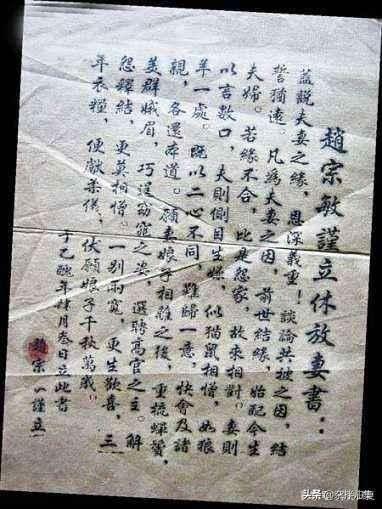 趙宗敏謹立休放妻書：
蓋說夫妻之緣，恩深義重！談論共被之因，結
誓猶遠。凡為夫妻之因，前世結緣，始配今生
夫婦。若緣不合，此是怨家，故來相對。妻則
以言數口，夫則側目生嫌，似猫鼠相憎，如狼
羊一處。既以二心不同，難歸一意，快會及諸
親，各還本道。願妻娘子相離之後，重梳蟬鬢，
美群娥眉，巧逞窈窕之姿，選聘高官之主。解
怨釋結，更莫相憎。一別兩寬，更生歡喜，三
年衣糧，便獻柔儀，伏願娘子千秋萬歲。
于己醜年肆月叁日立此書
趙宗謹立
头条